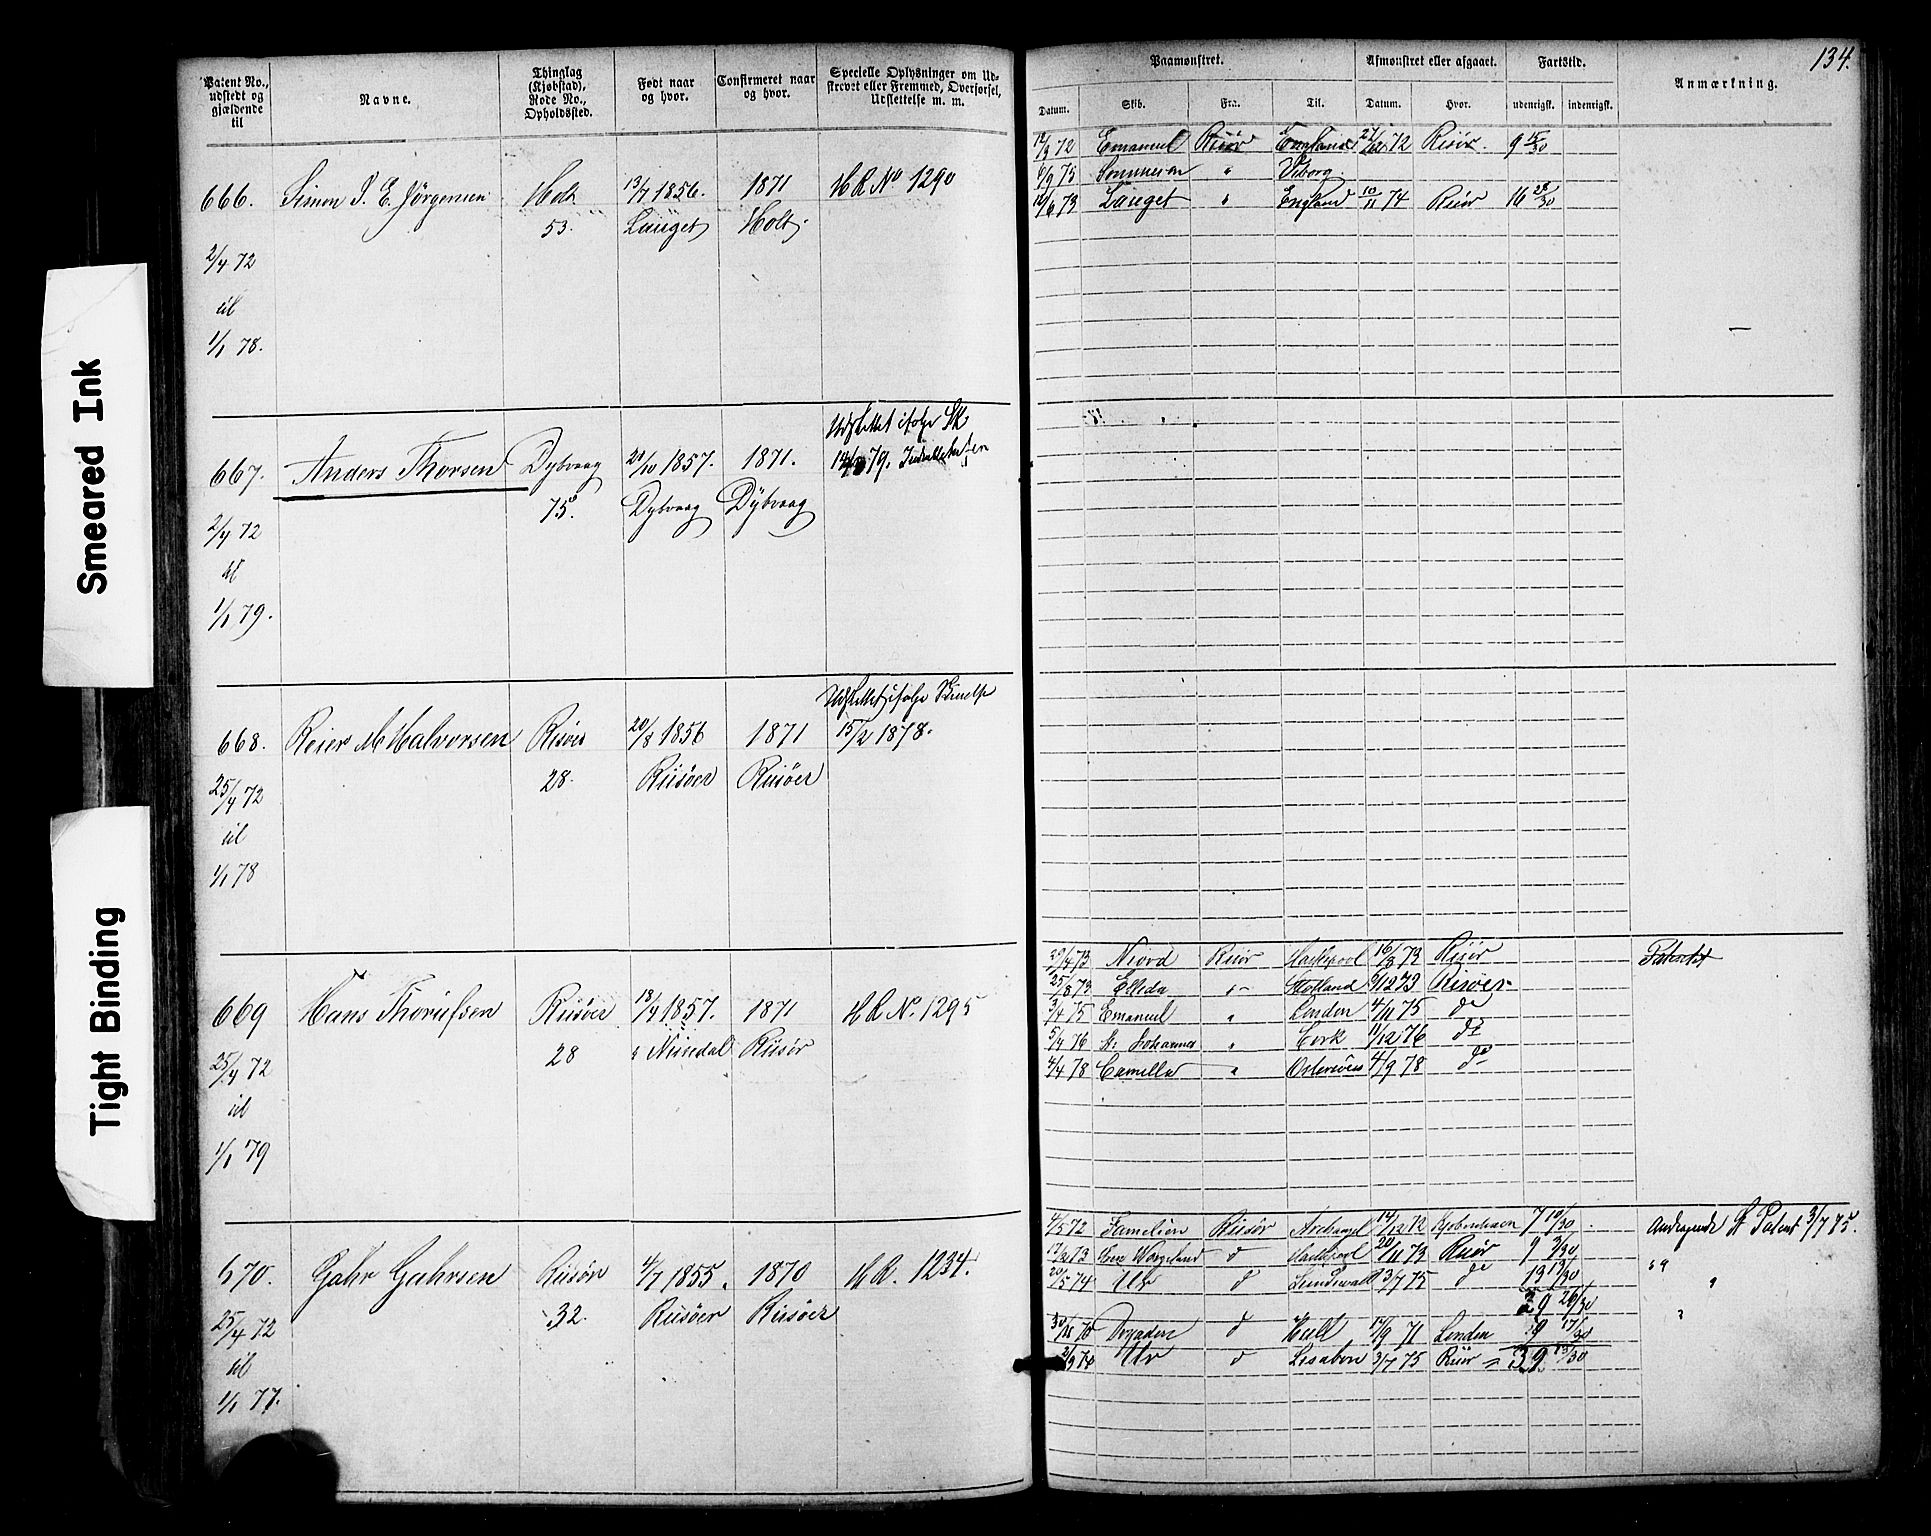 134.
Patent No., udstedt og gjældende til
Navne.
Thinglag (Kjøbstad), Rode No., Opholdssted.
Født naar og hvor.
Confirmeret naar og hvor.
Specielle Oplysninger om Udskrevet eller Fremmed, Overførsel, Udslettelse m. m.
Paamønstret.
Afmønstret eller afgaaet.
Fartstid.
Anmærkning.
Datum. Skib. Fra: Til. Datum. Hvor. udenrigst. indenrigst.
666. Simon J. E. Jörgensen Holt 13/7 1856. 1871 HR No 1290
53. Lauget Holt
2/4 72
til
1/1 78.
12/3 72 Emanuel Risör England 72 Risör. 9 15/30
6/9 75 " Viborg.
12/6 73 Lauget " England 10/11 74 Risör 16 28/30
667. Anders Thorsen Dybvaag 20/10 1857. 1871. Udslettet ifølge Sk
14/ 79.
75. Dybvaag Dybvaag
2/4 72
til
1/1 79.
668. Reier M Halvorsen Risöer 20/8 1856 1871 Udslettet ifølge Skrivelse
15/2 1878.
28. Riisöer Riisöer
25/4 72
til
1/1 78
669 Hans Thorufsen Riisöer 13/4 1857. 1871 HR No. 1295
28 Riisör
25/4 72
til
1/1 79
29/4 73 Niord Risör Hartlepool 16/8 73 Risör
25/8 73 Ellida " Holland 6/12 73 Risöer
3/4 75 Emanuel " London 4/11 75 do
5/4 76 St Johannes " Cork 11/12 76 do
4/4 78 Camilla " Osterriis 4/9 78 do
670. Gahr Gahrsen Riisör 4/7 1855. 1870 HR. 1234.
32. Riisöer Riisöer
25/4 72
til
1/1 77.
4/5 72 Familien Riisör Archangel 14/12 72 Kjöbenhavn 7 10/30 Andragende St Patent 3/7 75
17/2 73 Wergeland d Hartlepool 20/11 73 Risör 9 3/30
20/5 74 Ulv d 3/7 75 do 13 13/30
29 26/30
d Hull 17/9 71 London 9 17/30
2/9 74 Ulv d Lissabon 3/7 75 Risör = 39. 13/30
Smeared Ink
Tight Binding